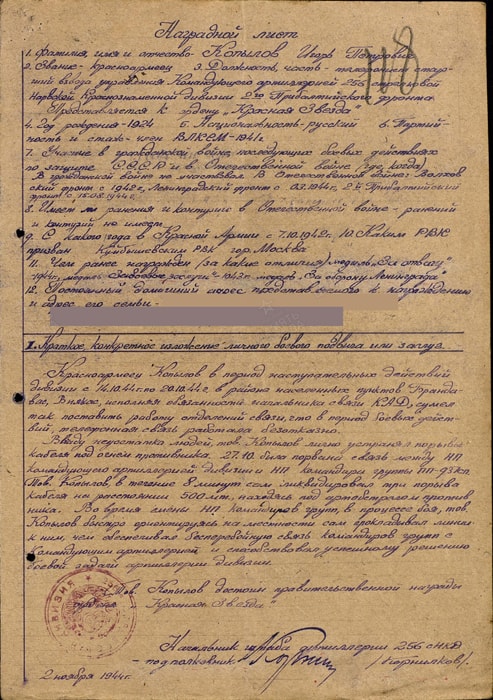 Наградной лист
1. Фамилия имя и отчество - Копылов Игорь Петрович
2. Звание - красноармеец 3. Должность, часть - телефонист стар-
ший взвода управления Командующего артиллерией - 256 стрелковой
Нарвской Краснознаменной дивизии 2го Прибалтийского фронта
Представляется к ордену "Красная Звезда"
4. Год рождения - 1924 5. Национальность - русский 6. Партий-
ность и стаж - член ВЛКСМ - 1941 г.
7. Участие в гражданской войне, последующих боевых действиях
по защите СССР и в Отечественной войне (где, когда)
В гражданской войне не участвовал. В Отечественной войне: Волхов-
ский фронт с 1942 г., Ленинградский фронт с 03.1944 г., 2й Прибалтийский
фронт с
8. Имеет ли ранения и контузии в Отечественной войне - ранений
и контузий не имеет
9. С какого года в Красной Армии с 7.10.1942 г. 10. Каким РВК
призван Куйбышевским РВК гор. Москва
11. Чем ранее награжден (за какие отличия) медаль "За отвагу"
медаль "За боевые заслуги" - 1943 г. медаль "За оборону Ленинграда"
12. Постоянный домашний адрес представляемого к награждению
и адрес его семьи -
I. Краткое, конкретное изложение личного боевого подвига или заслуг
Красноармеец Копылов в период наступательных действий
дивизии с 14.10.44 г. по 20.10.44 г. в районе населенных пунктов
исполняя обязанности начальника связи КАД, сумел
так поставить работу отделений связи, что в период боевых дейст-
вий, телефонная связь работала безотказно.
Ввиду недостатка людей, тов. Копылов лично устранял порывы
кабеля под огнем противника. 27.10 была порвана связь между НП
командующего артиллерией дивизии и НП командира группы
Тов. Копылов в течение 8 минут сам ликвидировал три порыва
кабеля на расстоянии 500 мт, находясь под артобстрелом против-
ника. Во время смены НП командиров групп, в процессе боя, тов.
Копылов быстро ориентируясь на местности сам прокладывал линии
к ним, чем обеспечивал бесперебойную связь командиров групп с
командующим артиллерией и способствовал успешному решению
боевой задачи артиллерии дивизии.
Тов. Копылов достоин правительственной награды
ордена "Красная Звезда"
Начальник штаба артиллерии 256 сНКД
- подполковник
2 ноября 1944 г.